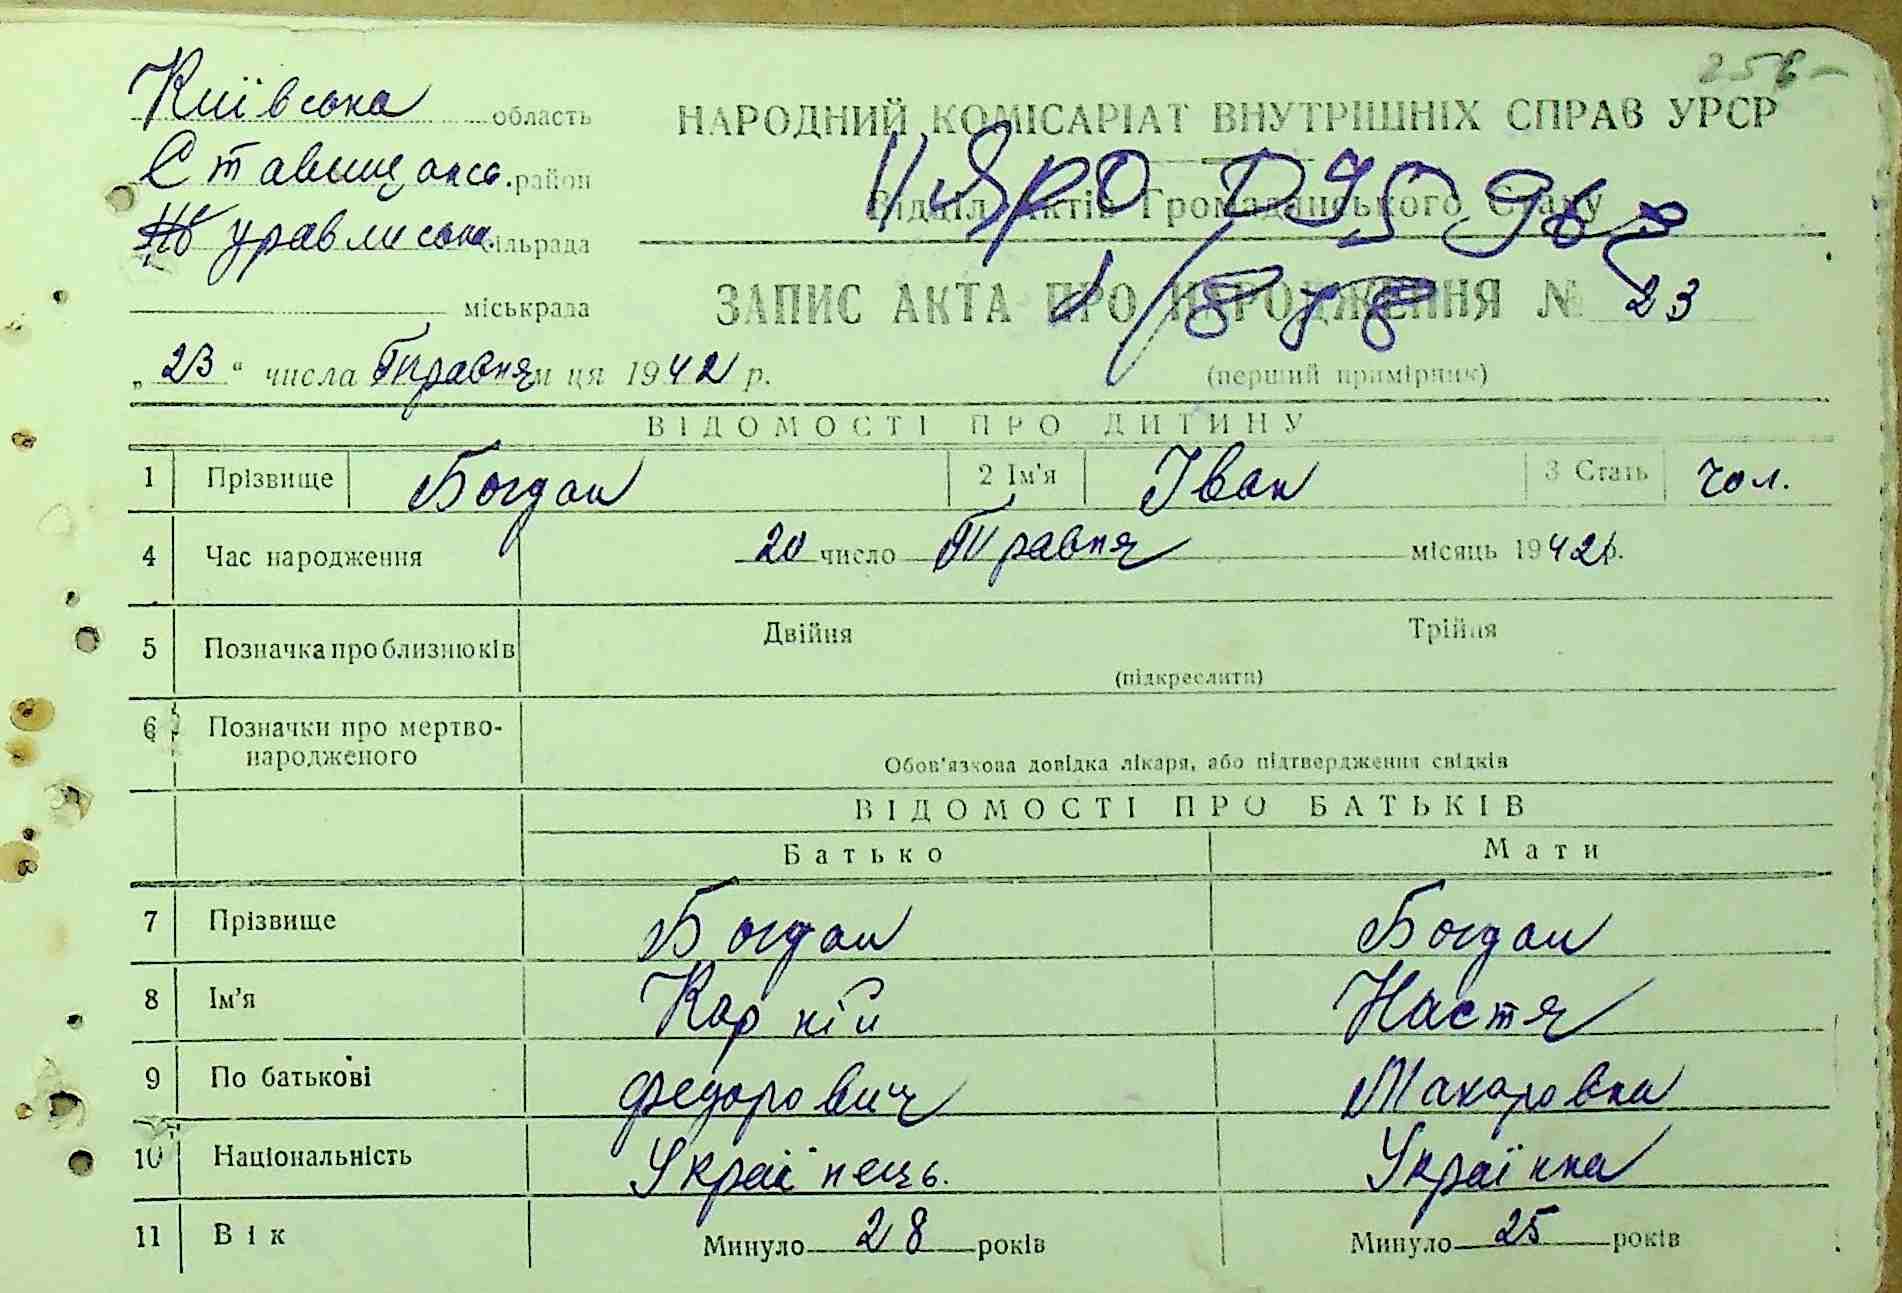 256
Київська область
Ставищанськ. район
Журавлиська сільрада
міськрада
НАРОДНИЙ КОМІСАРІАТ ВНУТРІШНІХ СПРАВ УРСР
Відділ Актів Громадянського Стану
ЗАПИС АКТА ПРО НАРОДЖЕННЯ № 23
(перший примірник)
„23“ числа Травня м ця 1942 р.
ВІДОМОСТІ ПРО ДИТИНУ
1 Прізвище Богдан 2 Ім'я Іван 3 Стать чол.
4 Час народження 20 число Травня місяць 1942р.
5 Позначка про близнюків Двійня Трійня
(підкреслити)
6 Позначки про мертво-
народженого
Обов'язкова довідка лікаря, або підтвердження свідків
ВІДОМОСТІ ПРО БАТЬКІВ
Батько Мати
7 Прізвище Богдан Богдан
8 Ім'я Карній Настя
9 По батькові Федорович Макаровна
10 Національність Українець. Українка
11 Вік Минуло 28 років Минуло 25 років